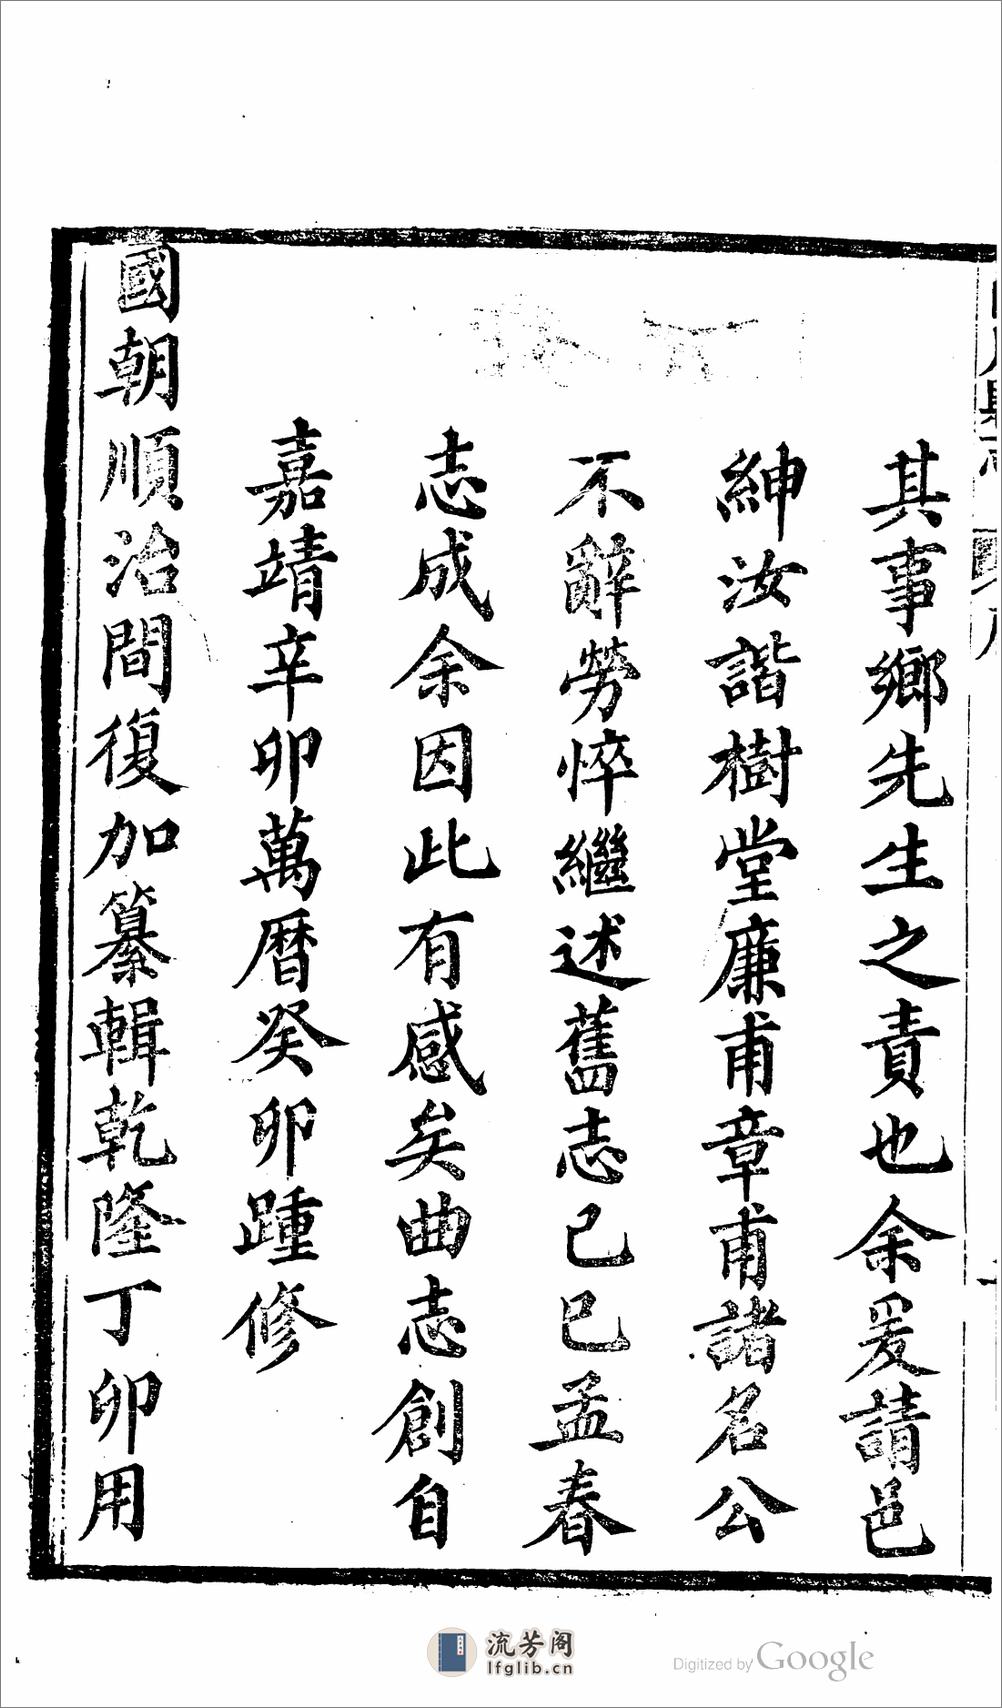 其事鄉先生之責也余爰請邑
紳汝諧樹堂廉甫章甫諸名公
不辭勞悴繼述舊志己巳孟春
志成余因此有感矣曲志創自
嘉靖辛卯萬曆癸卯踵修
國朝順治間復加纂輯乾隆丁卯用
流芳阁
lfglib.cn
Digitized by Google